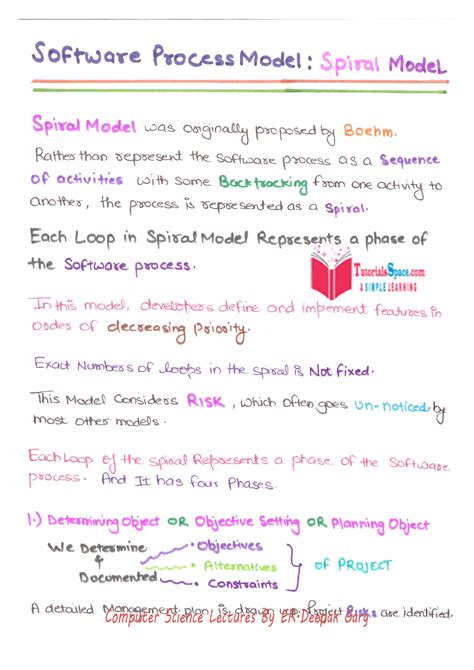 Software Process Model: Spiral Model
Spiral Model was originally proposed by Boehm.
Rather than represent the software process as a Sequence
of activities with some Backtracking from one activity to
another, the process is represented as a Spiral.
Each Loop in Spiral Model Represents a phase of
the Software process.
TutorialsSpace.com
A SIMPLE LEARNING
In this model, developers define and implement features in
order of decreasing Priority.
Exact Numbers of loops in the spiral is Not fixed.
This Model Considers RISK, which often goes un-noticed by
most other models.
Each Loop of the spiral Represents a phase of the Software
process. And It has four Phases.
1.) Determining Object OR Objective Setting OR Planning Object
We Determine & Documented
• Objectives
• Alternatives
• Constraints
of PROJECT
A detailed Management plan is drawn up. Project Risks are identified.
Computer Science Lectures By ER. Deepak Garg